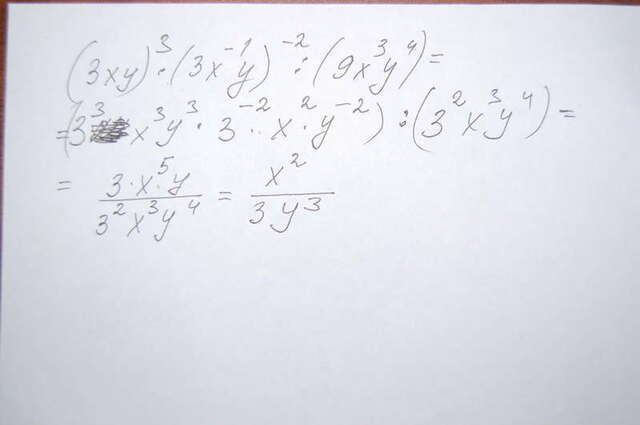 (3xy)³ · (3x⁻¹y)⁻² : (9x³y⁴) =
= (3³ x³y³ · 3⁻² · x² · y⁻²) : (3²x³y⁴) =
= (3·x⁵·y)/(3²x³y⁴) = x²/(3y³)